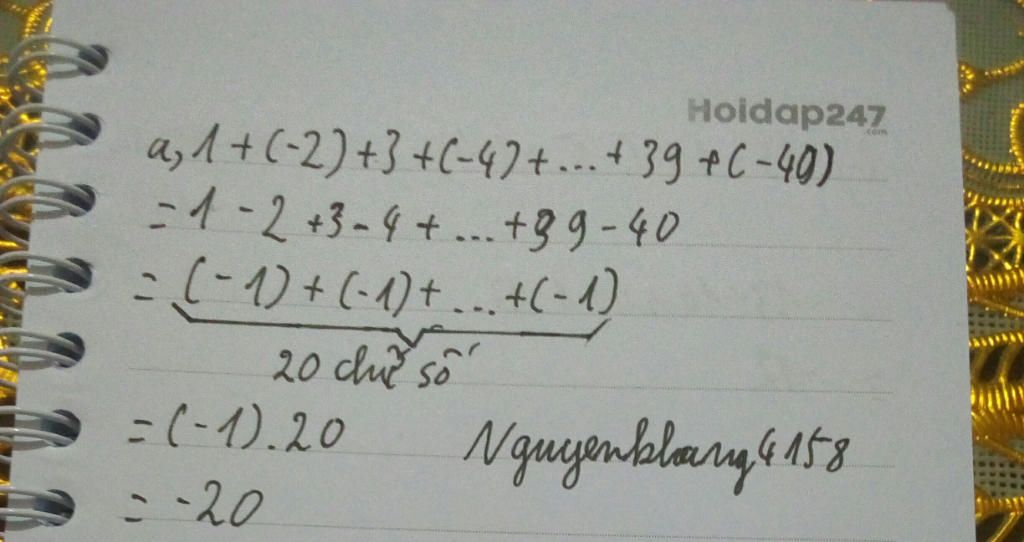 Hoidap247
.com
a, 1 + (-2) + 3 + (-4) + ... + 39 + (-40)
= 1 - 2 + 3 - 4 + ... + 39 - 40
= (-1) + (-1) + ... + (-1)
20 chữ số
= (-1) . 20
Nguyenkhang4158
= -20